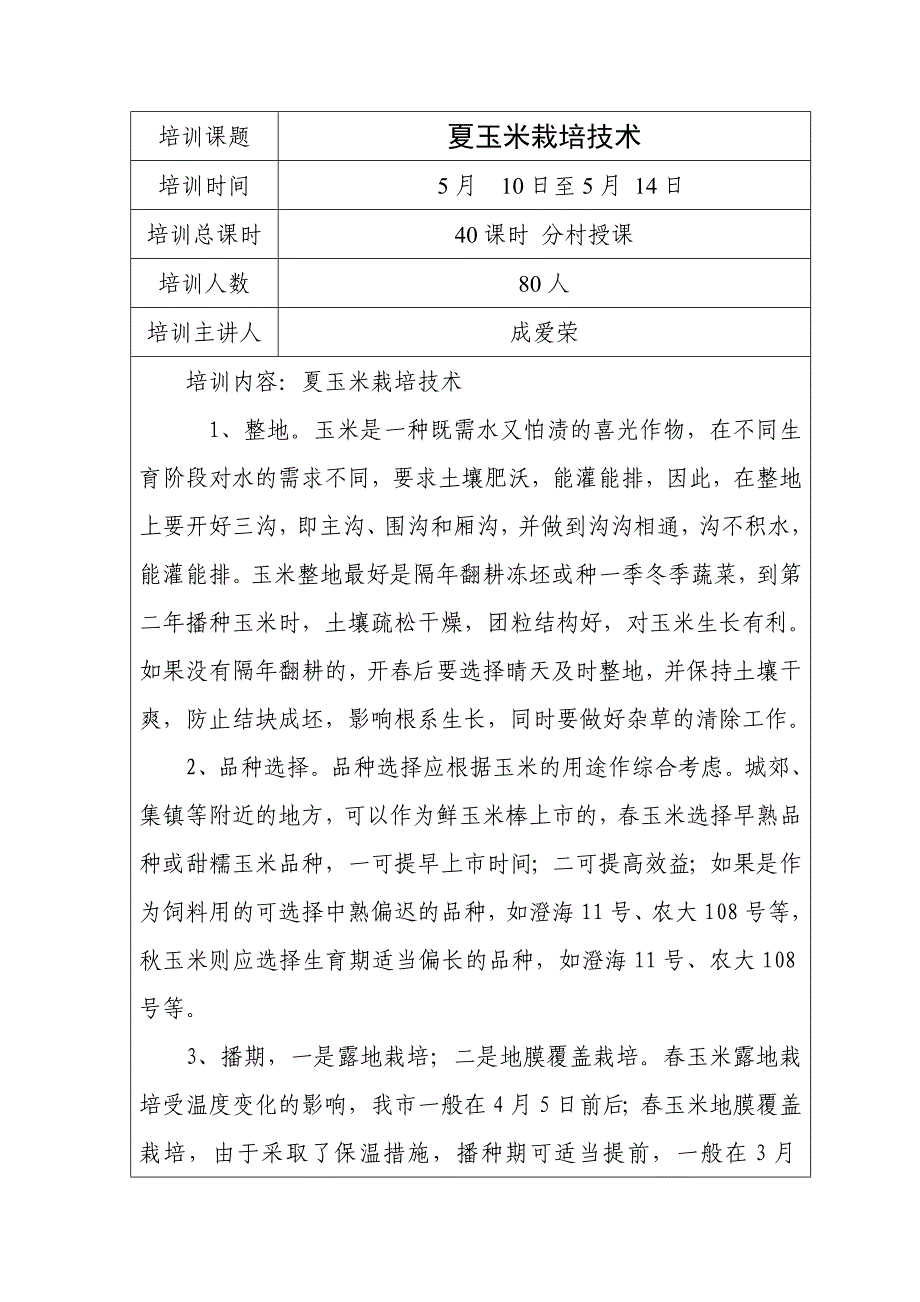 培训课题 夏玉米栽培技术
培训时间 5月 10日至5月 14日
培训总课时 40课时 分村授课
培训人数 80人
培训主讲人 成爱荣
培训内容：夏玉米栽培技术
1、整地。玉米是一种既需水又怕渍的喜光作物，在不同生
育阶段对水的需求不同，要求土壤肥沃，能灌能排，因此，在整地
上要开好三沟，即主沟、围沟和厢沟，并做到沟沟相通，沟不积水，
能灌能排。玉米整地最好是隔年翻耕冻坯或种一季冬季蔬菜，到第
二年播种玉米时，土壤疏松干燥，团粒结构好，对玉米生长有利。
如果没有隔年翻耕的，开春后要选择晴天及时整地，并保持土壤干
爽，防止结块成坯，影响根系生长，同时要做好杂草的清除工作。
2、品种选择。品种选择应根据玉米的用途作综合考虑。城郊、
集镇等附近的地方，可以作为鲜玉米棒上市的，春玉米选择早熟品
种或甜糯玉米品种，一可提早上市时间；二可提高效益；如果是作
为饲料用的可选择中熟偏迟的品种，如澄海11号、农大108号等，
秋玉米则应选择生育期适当偏长的品种，如澄海11号、农大108
号等。
3、播期，一是露地栽培；二是地膜覆盖栽培。春玉米露地栽
培受温度变化的影响，我市一般在4月5日前后；春玉米地膜覆盖
栽培，由于采取了保温措施，播种期可适当提前，一般在3月